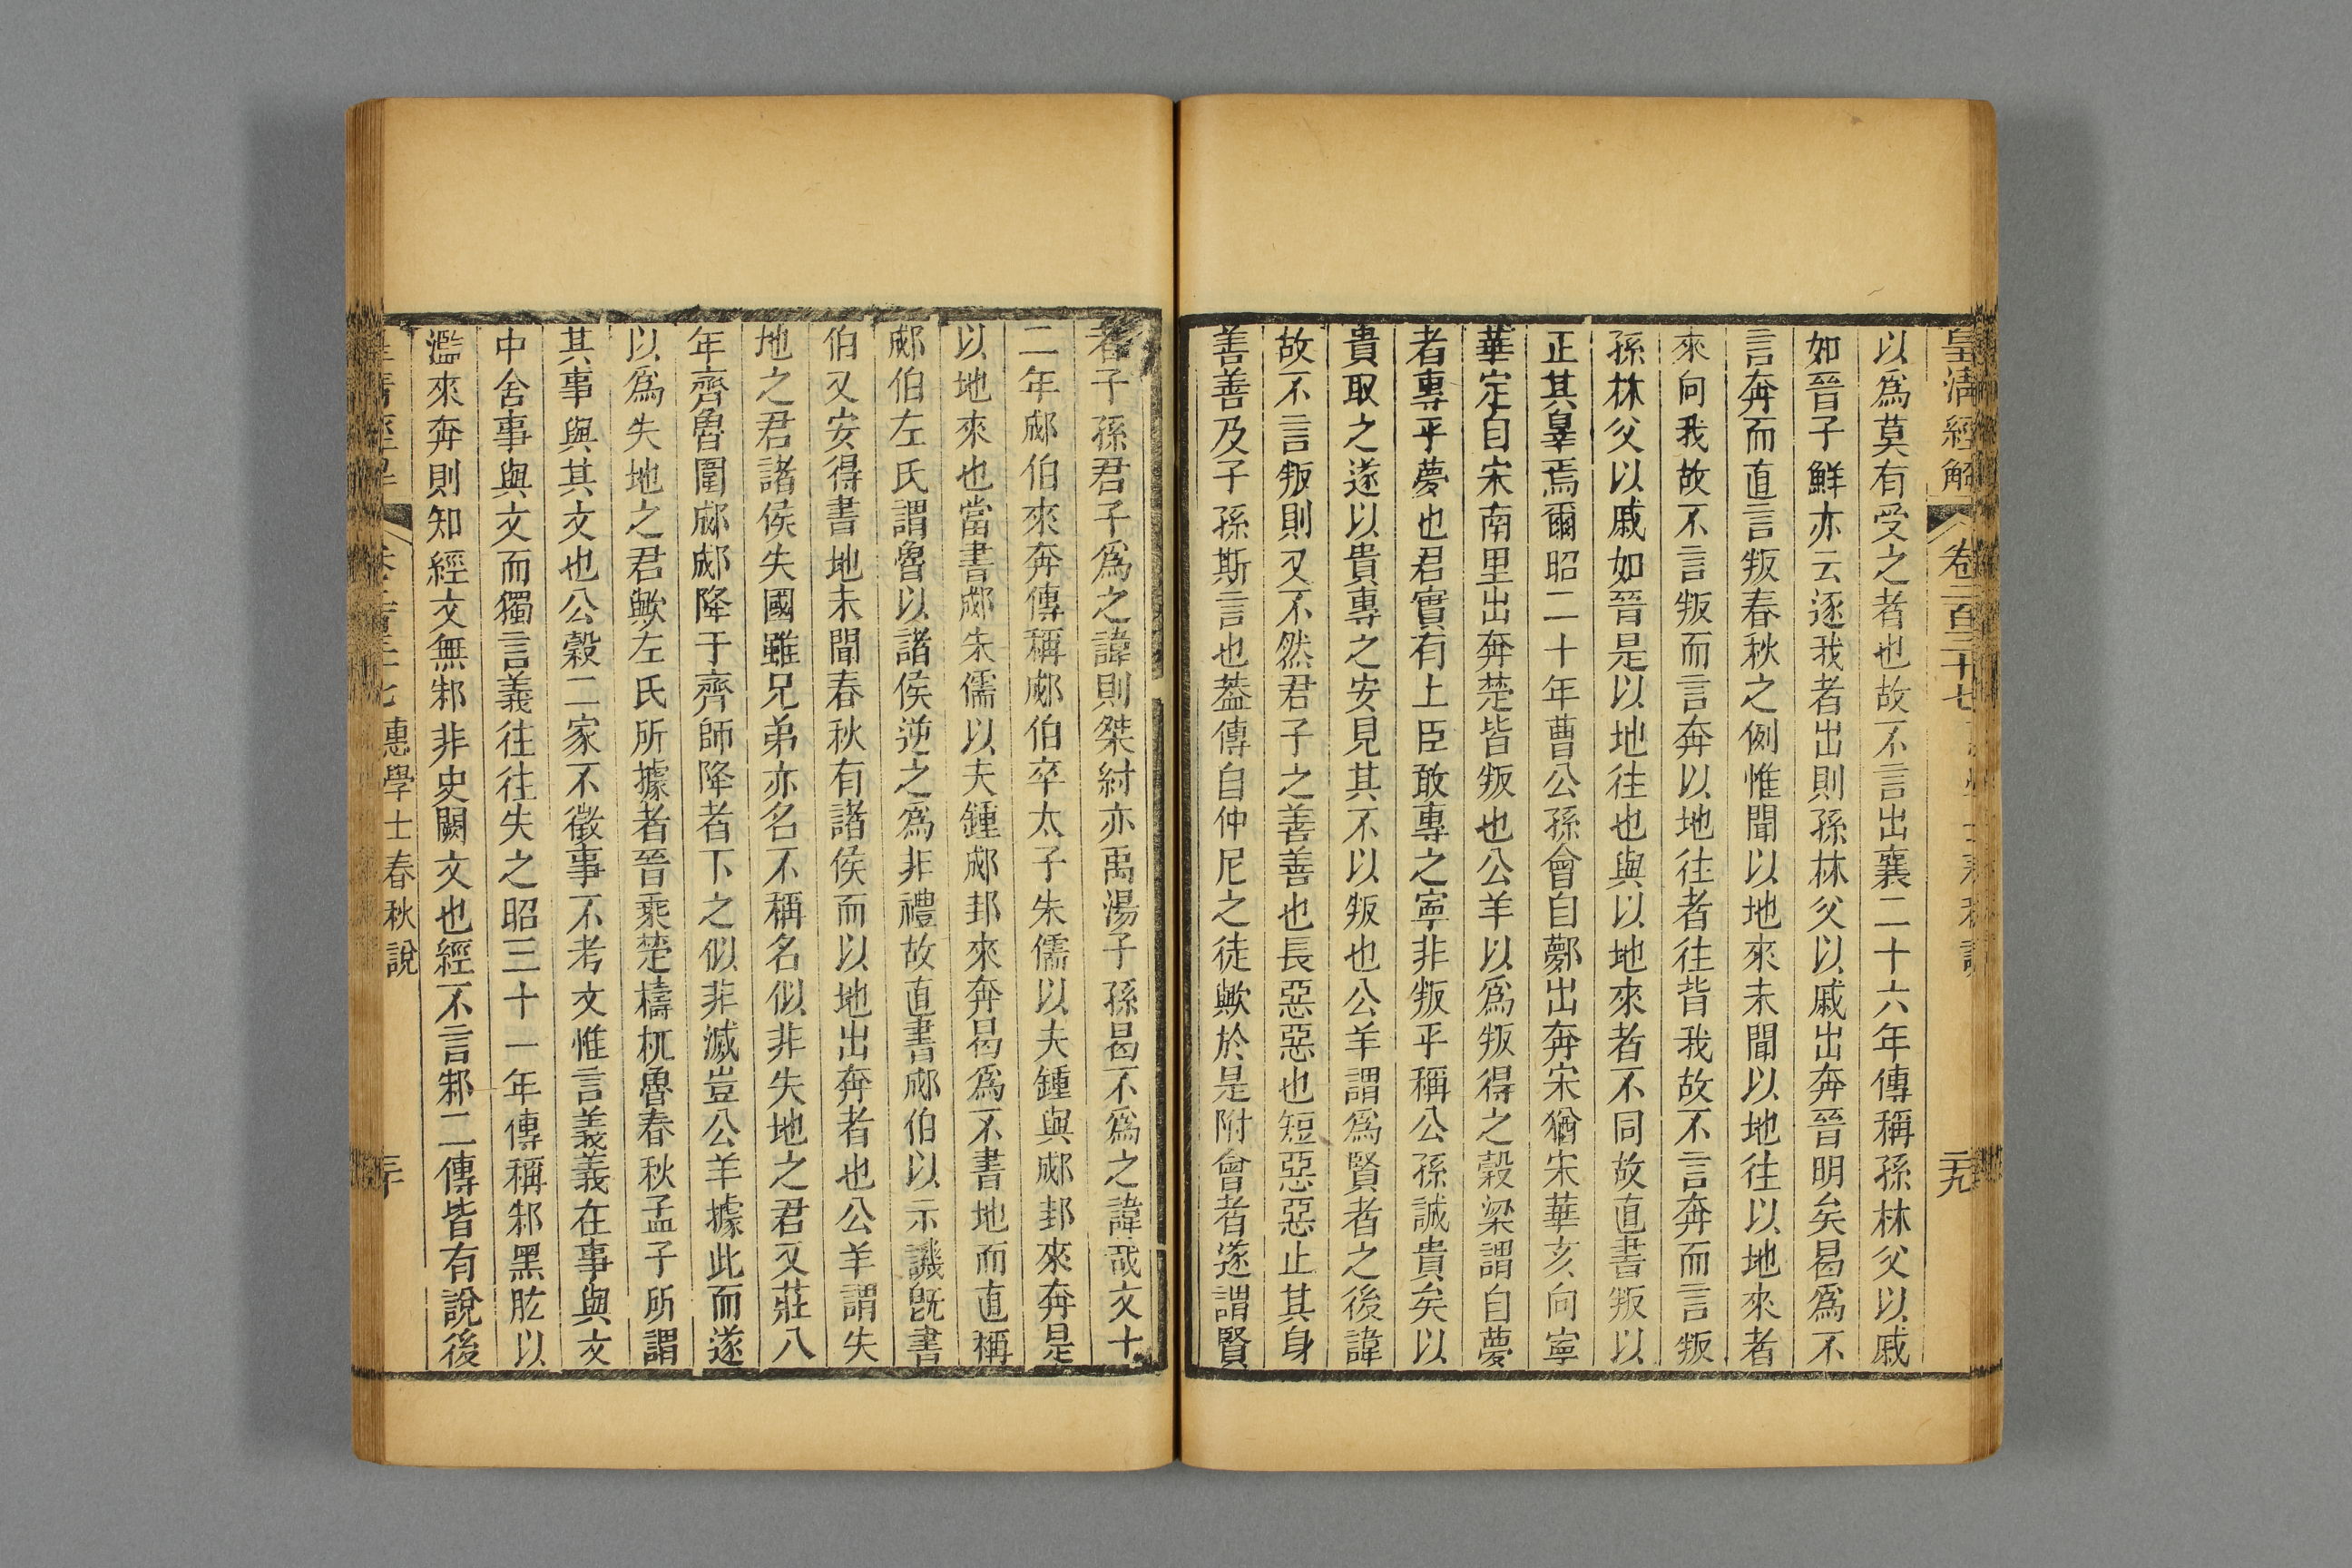 皇淸經解 卷二百三十七 二九
以爲莫有受之者也故不言出襄二十六年傳稱孫林父以戚
如晉子鮮亦云逐我者出則孫林父以戚出奔晉明矣曷爲不
言奔而直言叛春秋之例惟聞以地來未聞以地往以地來者
來向我故不言叛而言奔以地往者往皆我故不言奔而言叛
孫林父以戚如晉是以地往也與以地來者不同故直書叛以
正其辠焉爾昭二十年曹公孫會自鄸出奔宋猶宋華亥向寧
華定自宋南里出奔楚皆叛也公羊以爲叛得之穀梁謂自夢
者專乎夢也君實有上臣敢專之寧非叛乎稱公孫誠貴矣以
貴取之遂以貴專之安見其不以叛也公羊謂爲賢者之後諱
故不言叛則又不然君子之善善也長惡惡也短惡惡止其身
善善及子孫斯言也葢傳自仲尼之徒歟於是附會者遂謂賢
者子孫君子爲之諱則桀紂亦禹湯子孫曷不爲之諱哉文十
二年郕伯來奔傳稱郕伯卒太子朱儒以夫鍾與郕邽來奔是
以地來也當書郕朱儒以夫鍾郕邽來奔曷爲不書地而直稱
郕伯左氏謂魯以諸侯逆之爲非禮故直書郕伯以示譏旣書
伯又安得書地未聞春秋有諸侯而以地出奔者也公羊謂失
地之君諸侯失國雖兄弟亦名不稱名似非失地之君又莊八
年齊魯圍郕郕降于齊師降者下之似非滅豈公羊據此而遂
以爲失地之君歟左氏所據者晉乘楚檮杌魯春秋孟子所謂
其事與其文也公穀二家不徵事不考文惟言義義在事與文
中舍事與文而獨言義往往失之昭三十一年傳稱邾黑肱以
濫來奔則知經文無邾非史闕文也經不言邾二傳皆有說後
惠學士春秋說 三十